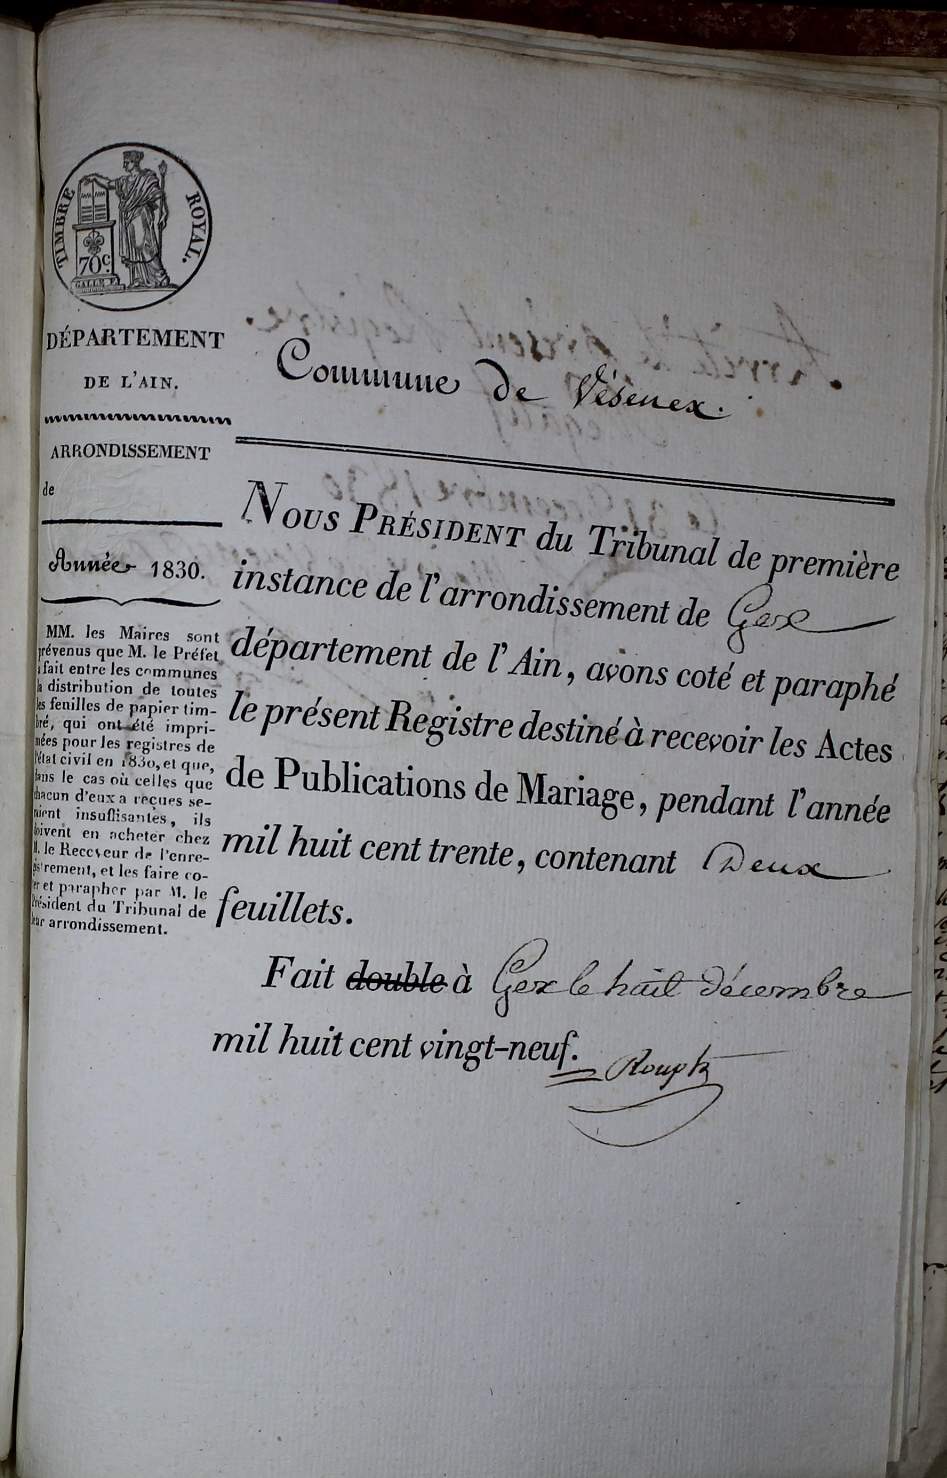 TIMBRE ROYAL.
70c.
GALLE F.
DÉPARTEMENT
DE L'AIN.
ARRONDISSEMENT
de
Année 1830.
MM. les Maires sont
prévenus que M. le Préfet
a fait entre les communes
la distribution de toutes
les feuilles de papier tim-
bré, qui ont été impri-
mées pour les registres de
l'état civil en 1830, et que,
dans le cas où celles que
chacun d'eux a reçues se-
raient insuffisantes, ils
doivent en acheter chez
M. le Receveur de l'enre-
gistrement, et les faire co-
ter et parapher par M. le
Président du Tribunal de
leur arrondissement.
Commune de Vésenex.
NOUS PRÉSIDENT du Tribunal de première
instance de l'arrondissement de Gex
département de l'Ain, avons coté et paraphé
le présent Registre destiné à recevoir les Actes
de Publications de Mariage, pendant l'année
mil huit cent trente, contenant Deux
feuillets.
Fait double à Gex le huit décembre
mil huit cent vingt-neuf.